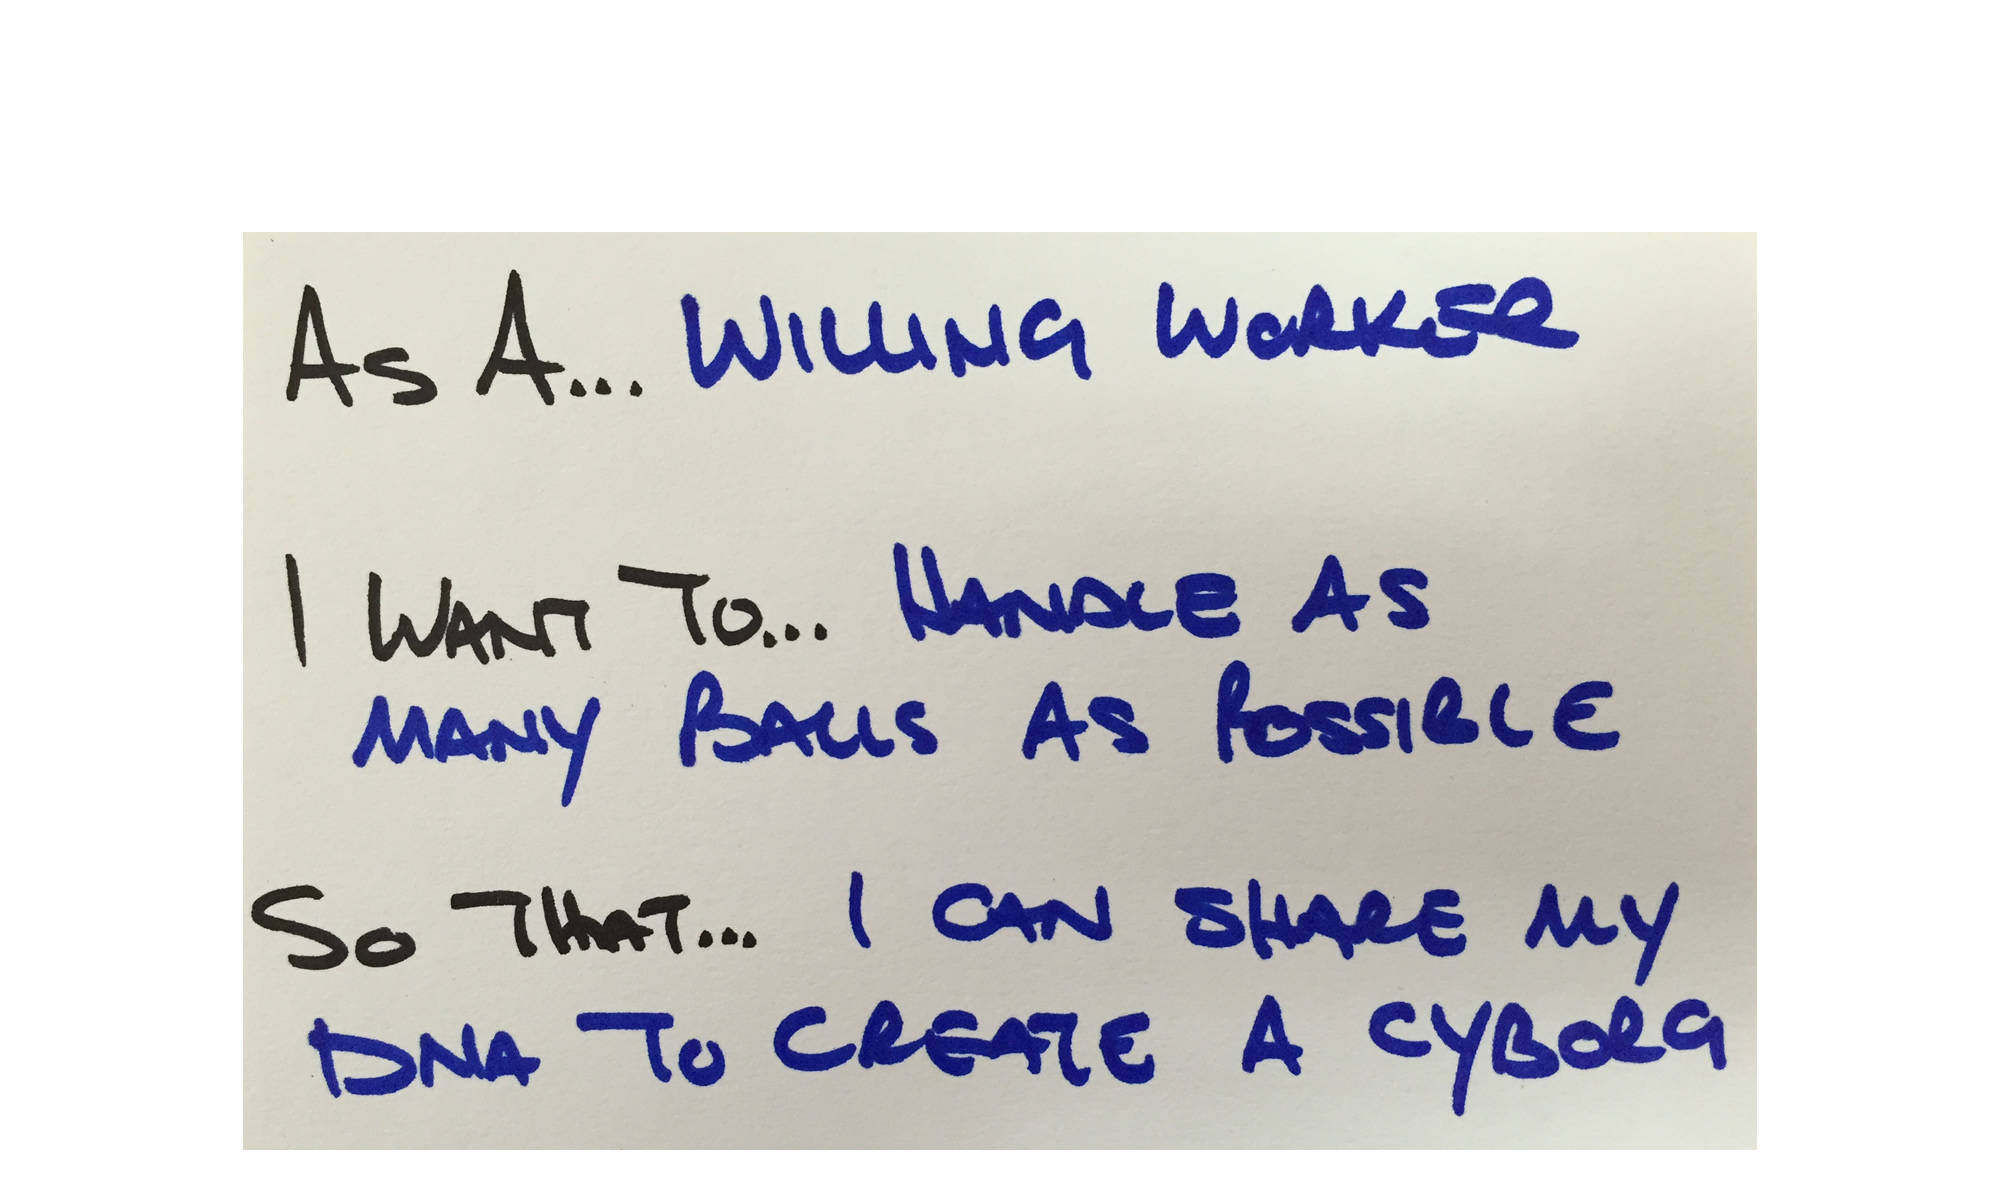 As A... WILLING WORKER
I WANT To... HANDLE AS
MANY BALLS AS POSSIBLE
So THAT... I CAN SHARE MY
DNA To CREATE A CYBORG